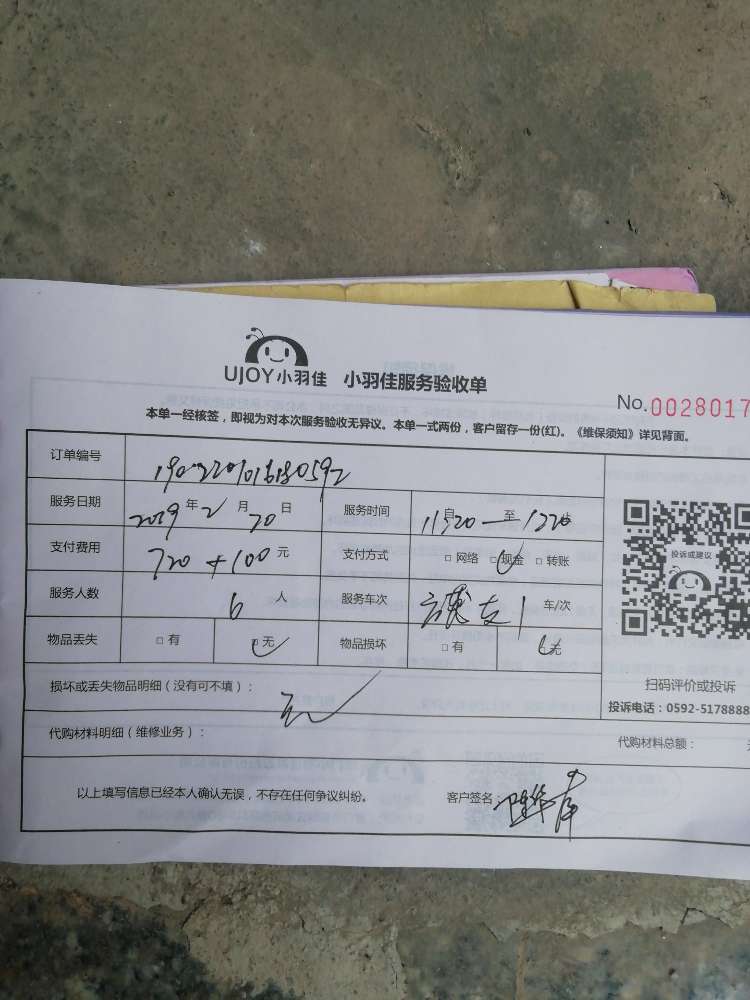 UJOY小羽佳 小羽佳服务验收单
No.0028017
本单一经核签，即视为对本次服务验收无异议。本单一式两份，客户留存一份(红)。《维保须知》详见背面。
订单编号
服务日期 2019年2月20日 服务时间 自 11:20 — 至 1220 止
支付费用 720+100元 支付方式 □网络 □现金 □转账
服务人数 6人 服务车次 1 车/次
物品丢失 □有 □无 物品损坏 □有 □无
投诉或建议
扫码评价或投诉
投诉电话：0592-5178888
损坏或丢失物品明细（没有可不填）： 无
代购材料明细（维修业务）： 代购材料总额：
以上填写信息已经本人确认无误，不存在任何争议纠纷。 客户签名：